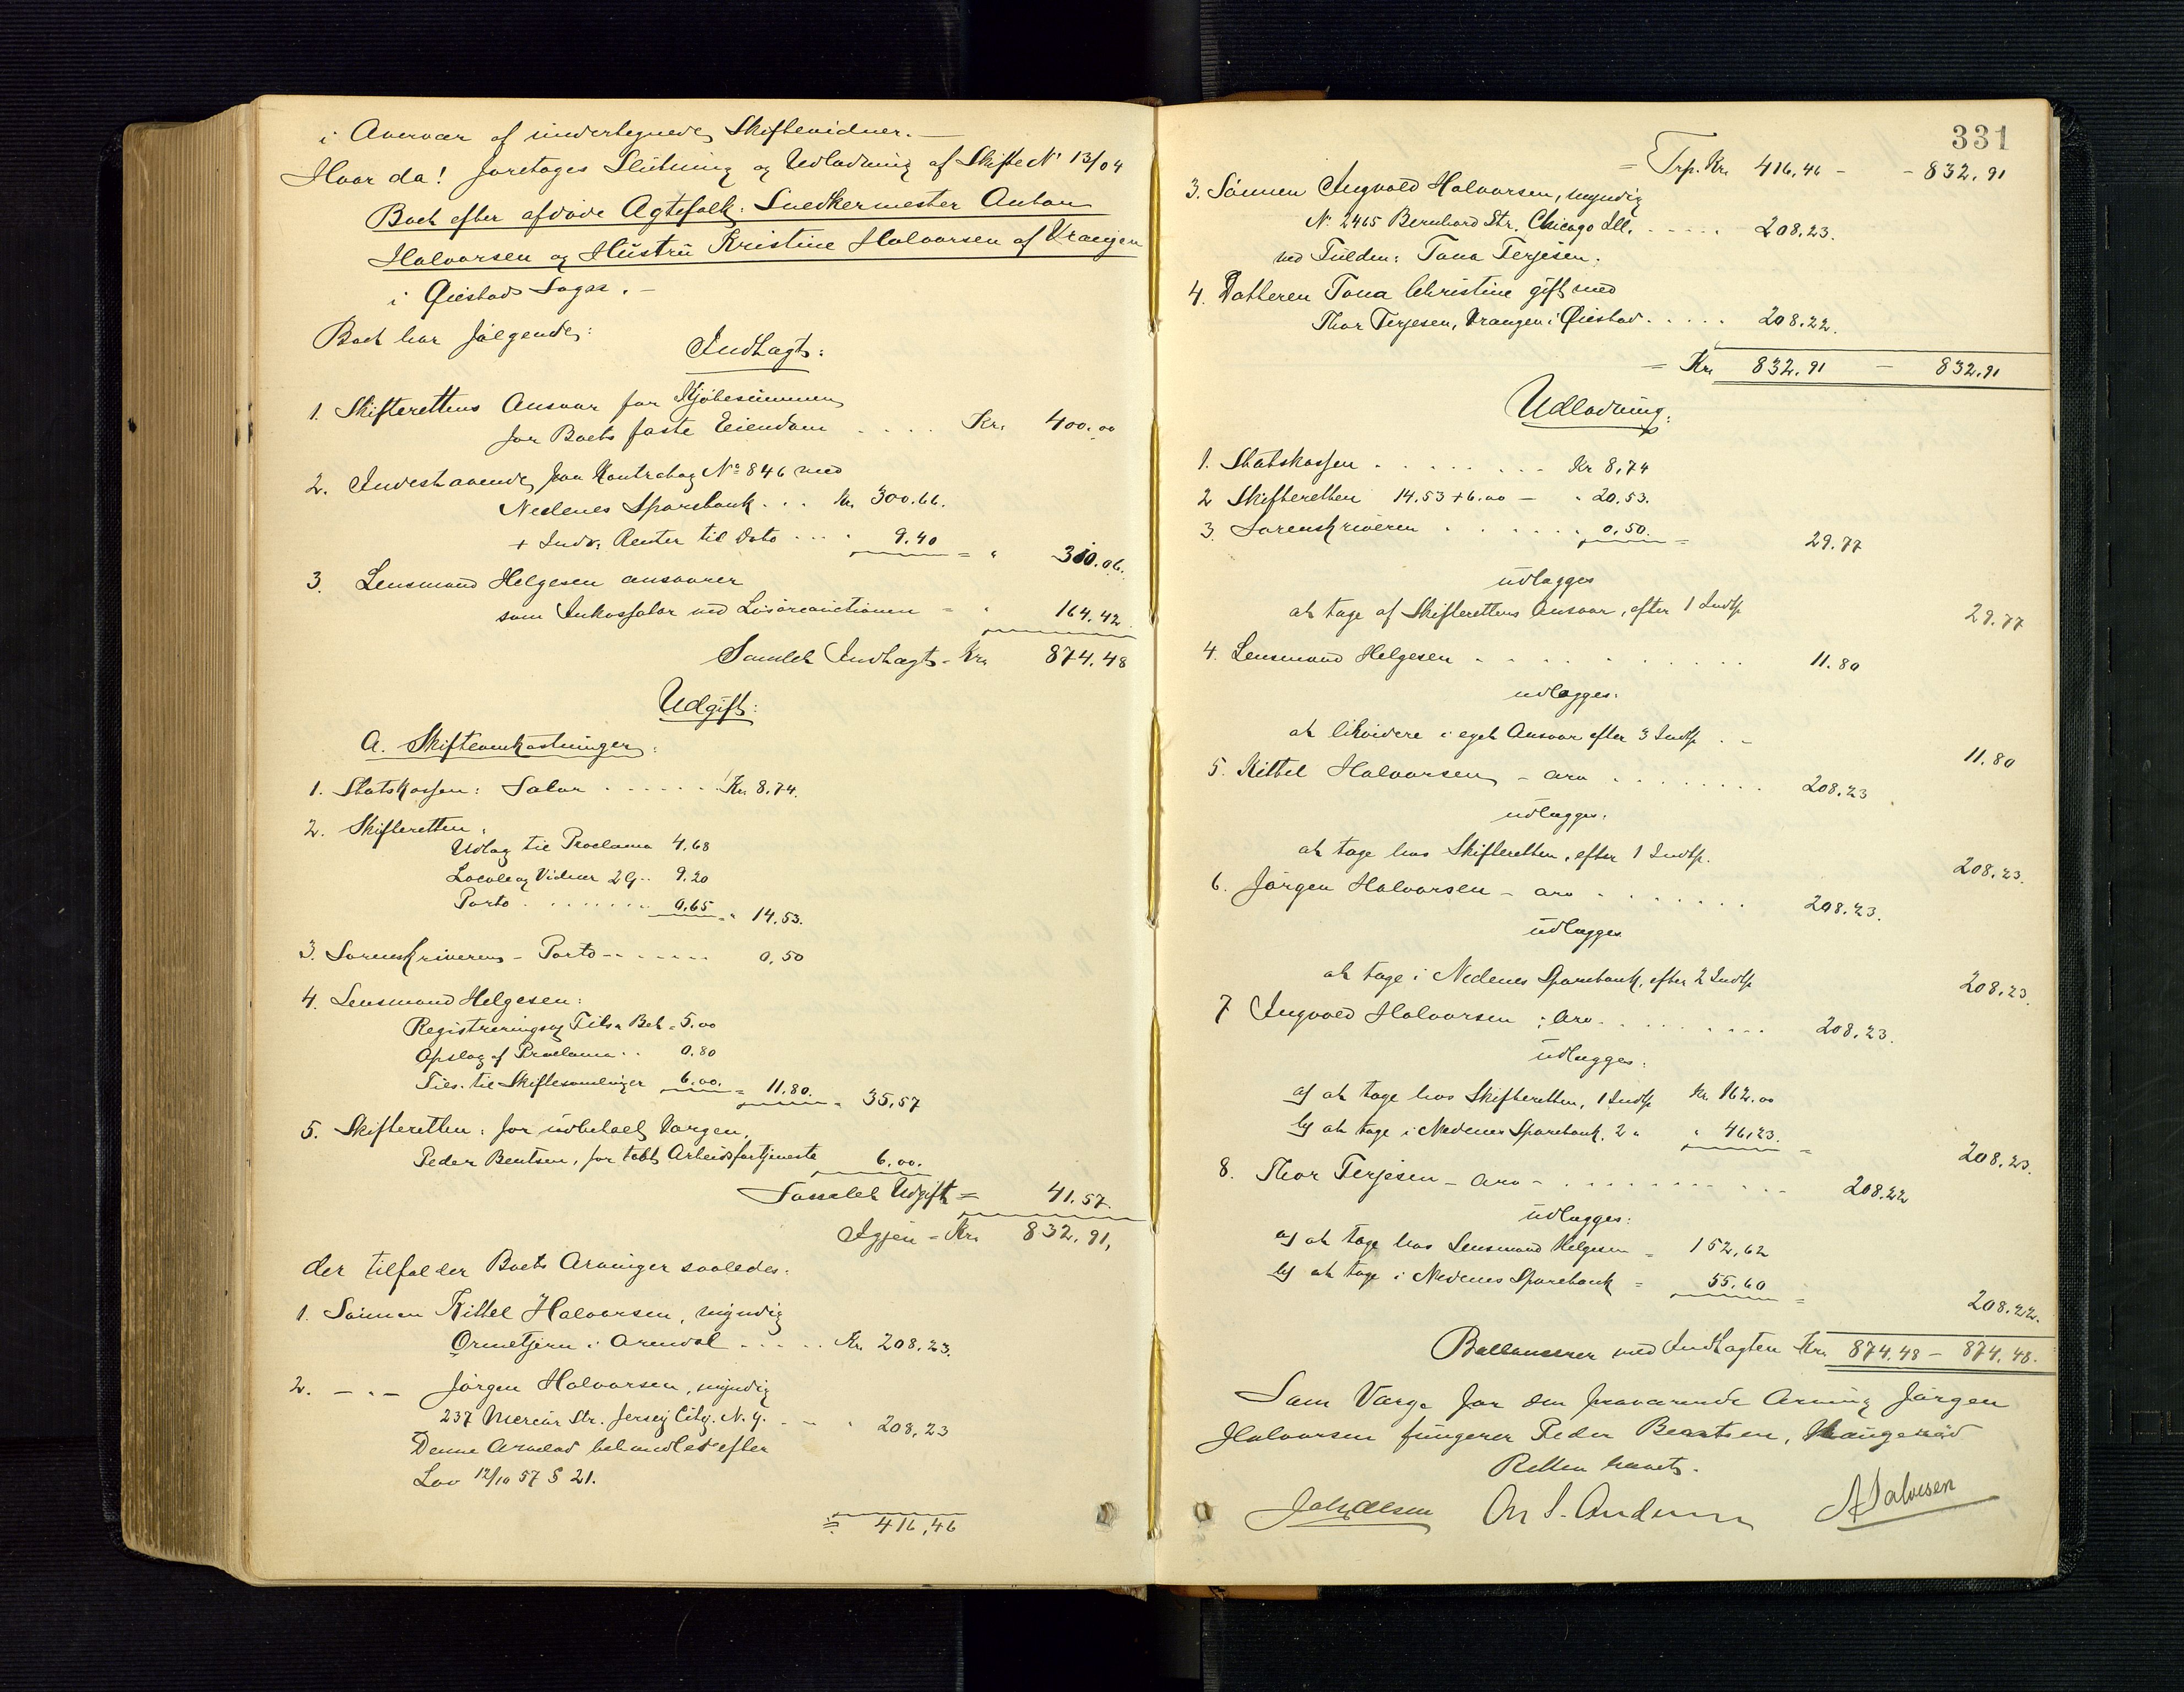 i Overvær af undertegnede Skiftevidner. —
Hvor da! foretages Slutning og Udlodning af Skifte No 13/04
Boet efter afdøde Ægtefolk: Snedkermester Anton
Halvorsen og Hustru Kristine Halvorsen af Vrængen
i Øiestads Sogn. —
Boet har følgende:
Indtægt:
1. Skifterettens Ansvar for Kjøbesummen
for Boets faste Eiendom . . . . Kr. 400.00
2. Indestaaende paa Kontrabog No 846 med
Nedenes Sparebank . . . Kr. 300.66.
+ Indv: Renter til Dato . . . . 9.40 = " 310.06.
3. Lensmand Helgesen ansvarer
som Inkassator ved Løsøreauctionen = " 164.42
Samlet Indtægt - Kr. 874.48
Udgift:
A. Skifteomkostninger:
1. Statskassen: Salær . . . . . . Kr. 8.74.
2. Skifteretten:
Udlæg til Proclama 4.68
Locale og Vidner 2 G.. 9.20
Porto . . . . . . . . 0.65 = " 14.53.
3. Sorenskriverens - Porto - - . . . . . . 0,50
4. Lensmand Helgesen:
Registrerings og Tils. Bet. 5.00
Opslag af Proclama . . 0.80
Tils. til Skiftesamlinger 6.00. = 11.80. " 35,57
5. Skifteretten: for udbetalt Værgen,
Peder Bentsen, for tabt Arbeidsfortjeneste 6.00.
Samlet Udgift = 41.57.
Igjen = Kr. 832.91,
der tilfalder Boets Arvinger saaledes:
1. Sønnen Kittel Halvorsen, myndig
Ormetjern i Arendal . . . . . Kr. 208.23.
2. — " — Jørgen Halvorsen, myndig
237 Mercer Str. Jersey City. N. Y. . — " 208,23
Denne Arvelod behandles efter
Lov 12/10 57 § 21.
= 416,46
331
= Trp. Kr. 416,46 - - 832.91
3. Sønnen Ingvald Halvorsen, myndig
No 2465 Bernhard Str. Chicago Ill. . . . . . 208.23.
ved Fuldm: Tona Terjesen.
4. Datteren Tona Christine gift med
Thor Terjesen, Vrængen i Øiestad. . . . . 208.22.
= Kr. 832.91 — 832.91
Udlodning:
1. Statskassen . . . . . . . . . Kr 8,74
2 Skifteretten 14.53 + 6.00 — " 20.53.
3. Sorenskriveren . . . . . . . 0,50. = 29.77
udlægges
at tage af Skifterettens Ansvar, efter 1 Indtp 29.77
4. Lensmand Helgesen . . . . . . . . . . 11.80
udlægges:
at likvidere i eget Ansvar efter 3 Indtp . - 11.80
5. Kittel Halvorsen, - arv . . . . . . . . . 208.23
udlægges:
at tage hos Skifteretten, efter 1 Indtp. 208.23.
6. Jørgen Halvorsen - arv . . . . . . . 208.23.
udlægges
at tage i Nedenes Sparebank, efter 2 Indtp 208.23.
7 Ingvald Halvorsen : Arv. . . . . . . . . 208.23.
udlægges:
a) at tage hos Skifteretten, 1 Indtp Kr. 162.00
b) at tage i Nedenes Sparebank. 2 " " 46,23. = 208.23.
8. Thor Terjesen - arv - . . . . . . . . . . 208.22
udlægges:
a) at tage hos Lensmand Helgesen = 152,62
b) at tage i Nedenes Sparebank = 55.60 = 208.22.
Ballancerer med Indtægten Kr. 874.48 — 874,48.
Som Værge for den fraværende Arving Jørgen
Halvorsen fungerer Peder Bentsen,
Retten hævet.
Joh. Olsen On S. Andersen A Salvesen